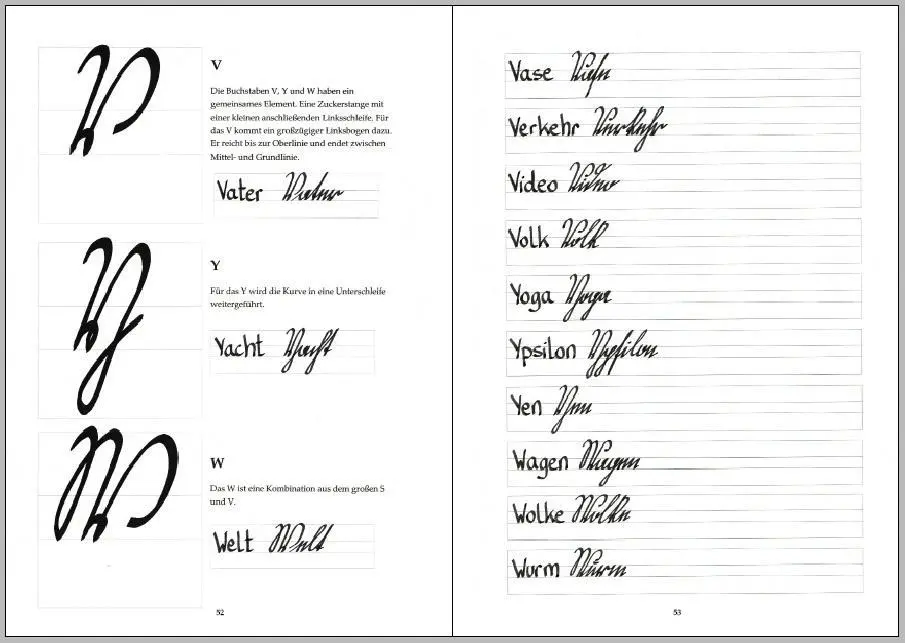 V
Die Buchstaben V, Y und W haben ein
gemeinsames Element. Eine Zuckerstange mit
einer kleinen anschließenden Linksschleife. Für
das V kommt ein großzügiger Linksbogen dazu.
Er reicht bis zur Oberlinie und endet zwischen
Mittel- und Grundlinie.
V
Vater Vater
Y
Für das Y wird die Kurve in eine Unterschleife
weitergeführt.
Y
Yacht Yacht
W
Das W ist eine Kombination aus dem großen S
und V.
W
Welt Welt
52
Vase Vase
Verkehr Verkehr
Video Video
Volk Volk
Yoga Yoga
Ypsilon Ypsilon
Yen Yen
Wagen Wagen
Wolke Wolke
Wurm Wurm
53